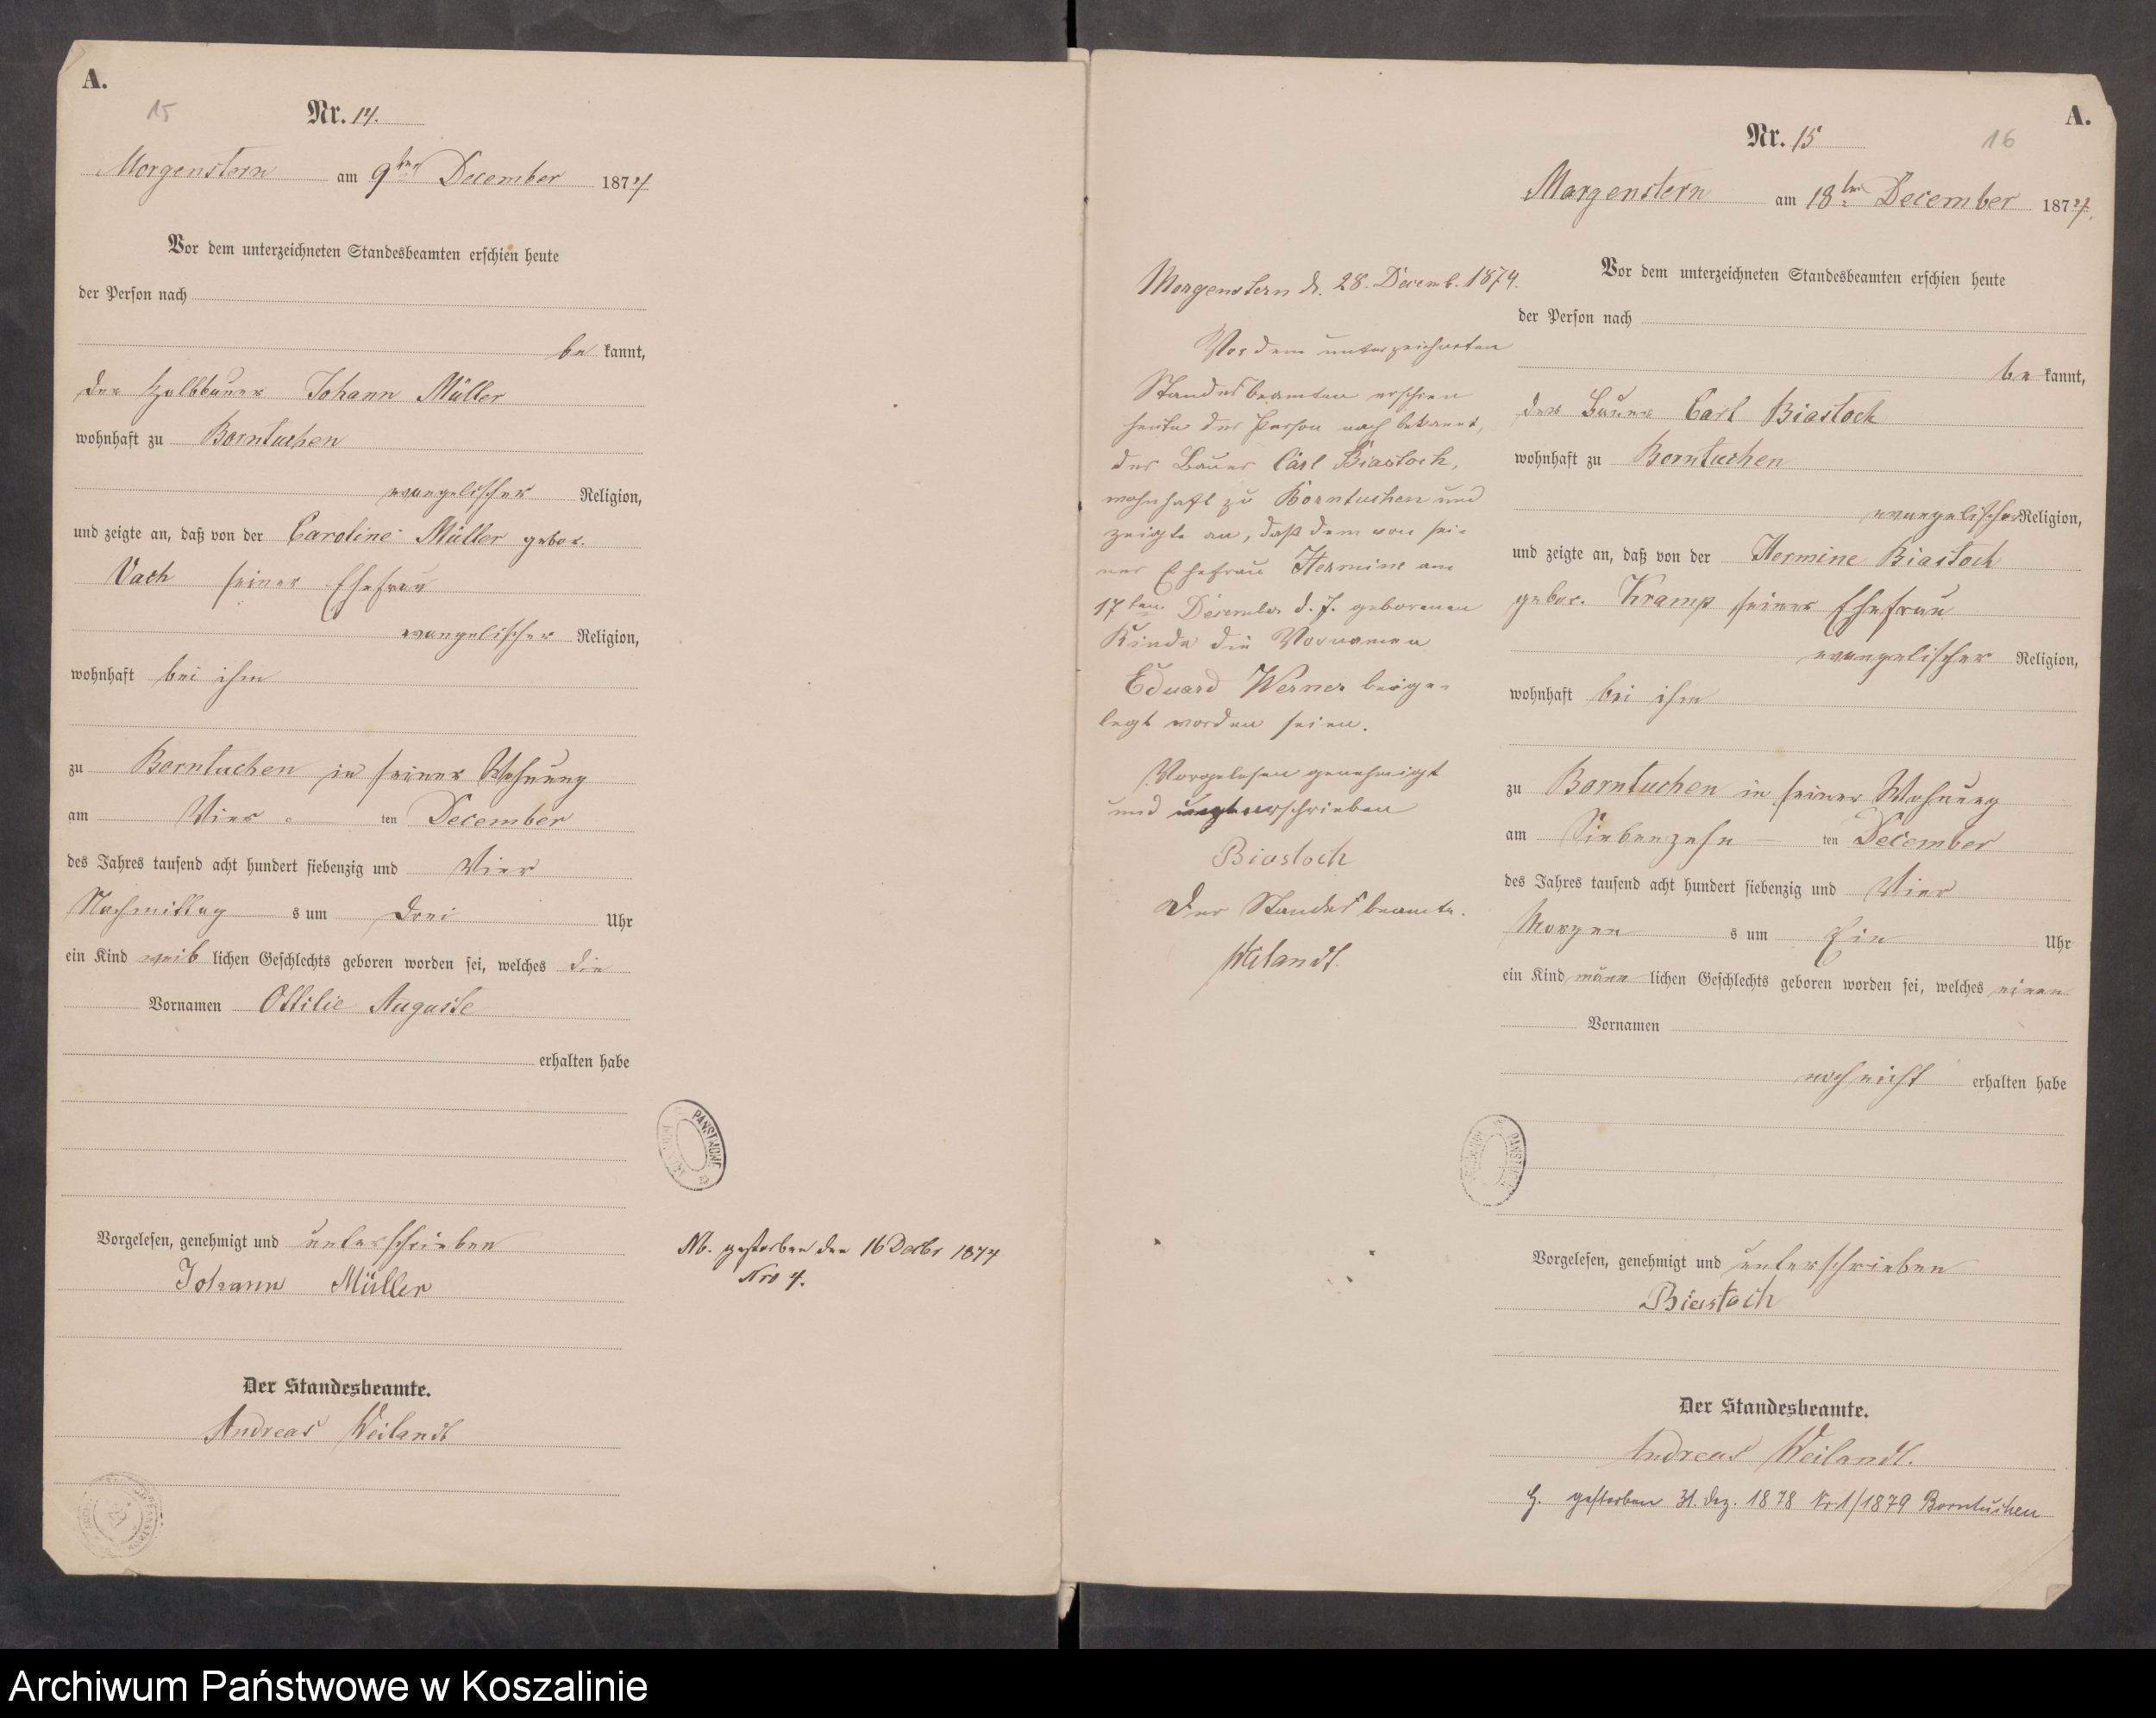 A.
15
Nr. 14.
Morgenstern am 9ten December 1874
Vor dem unterzeichneten Standesbeamten erschien heute
der Person nach
be kannt,
der Halbbauer Johann Müller
wohnhaft zu Borntuchen
evangelischer Religion,
und zeigte an, daß von der Caroline Müller gebor.
Vach seiner Ehefrau
evangelischer Religion,
wohnhaft bei ihm
zu Borntuchen in seiner Wohnung
am Vier ten December
des Jahres tausend acht hundert siebenzig und Vier
Nachmittag s um Drei Uhr
ein Kind weib lichen Geschlechts geboren worden sei, welches die
Vornamen Ottilie Auguste
erhalten habe
PAŃSTWOWE
Vorgelesen, genehmigt und unterschrieben
Johann Müller
Nb. gestorben den 16 Decbr 1874
Nro 4.
Der Standesbeamte.
Andreas Weilandt
A.
16
Nr. 15
Morgenstern am 18ten December 1874.
Vor dem unterzeichneten Standesbeamten erschien heute
der Person nach
be kannt,
der Bauer Carl Biastoch
wohnhaft zu Borntuchen
evangelischer Religion,
und zeigte an, daß von der Hermine Biastoch
gebor. Kramp seiner Ehefrau
evangelischer Religion,
wohnhaft bei ihm
zu Borntuchen in seiner Wohnung
am Siebenzehn ten December
des Jahres tausend acht hundert siebenzig und Vier
Morgen s um Ein Uhr
ein Kind männ lichen Geschlechts geboren worden sei, welches einen
Vornamen
noch nicht erhalten habe
Vorgelesen, genehmigt und unterschrieben
Biastoch
Der Standesbeamte.
Andreas Weilandt.
gestorben 31. Dez. 1878 Nr 1/1879 Borntuchen
Morgenstern d. 28. Decemb. 1874.
Vor dem unterzeichneten
Standesbeamten erschien
heute der Person nach bekannt,
der Bauer Carl Biastoch,
wohnhaft zu Borntuchen und
zeigte an, daß dem von sei-
ner Ehefrau Hermine am
17ten December d. J. geborenen
Kinde die Vornamen
Eduard Werner beige-
legt worden seien.
Vorgelesen genehmigt
und unterschrieben
Biastoch
Der Standesbeamte.
Weilandt.
PAŃSTWOWE
Archiwum Państwowe w Koszalinie